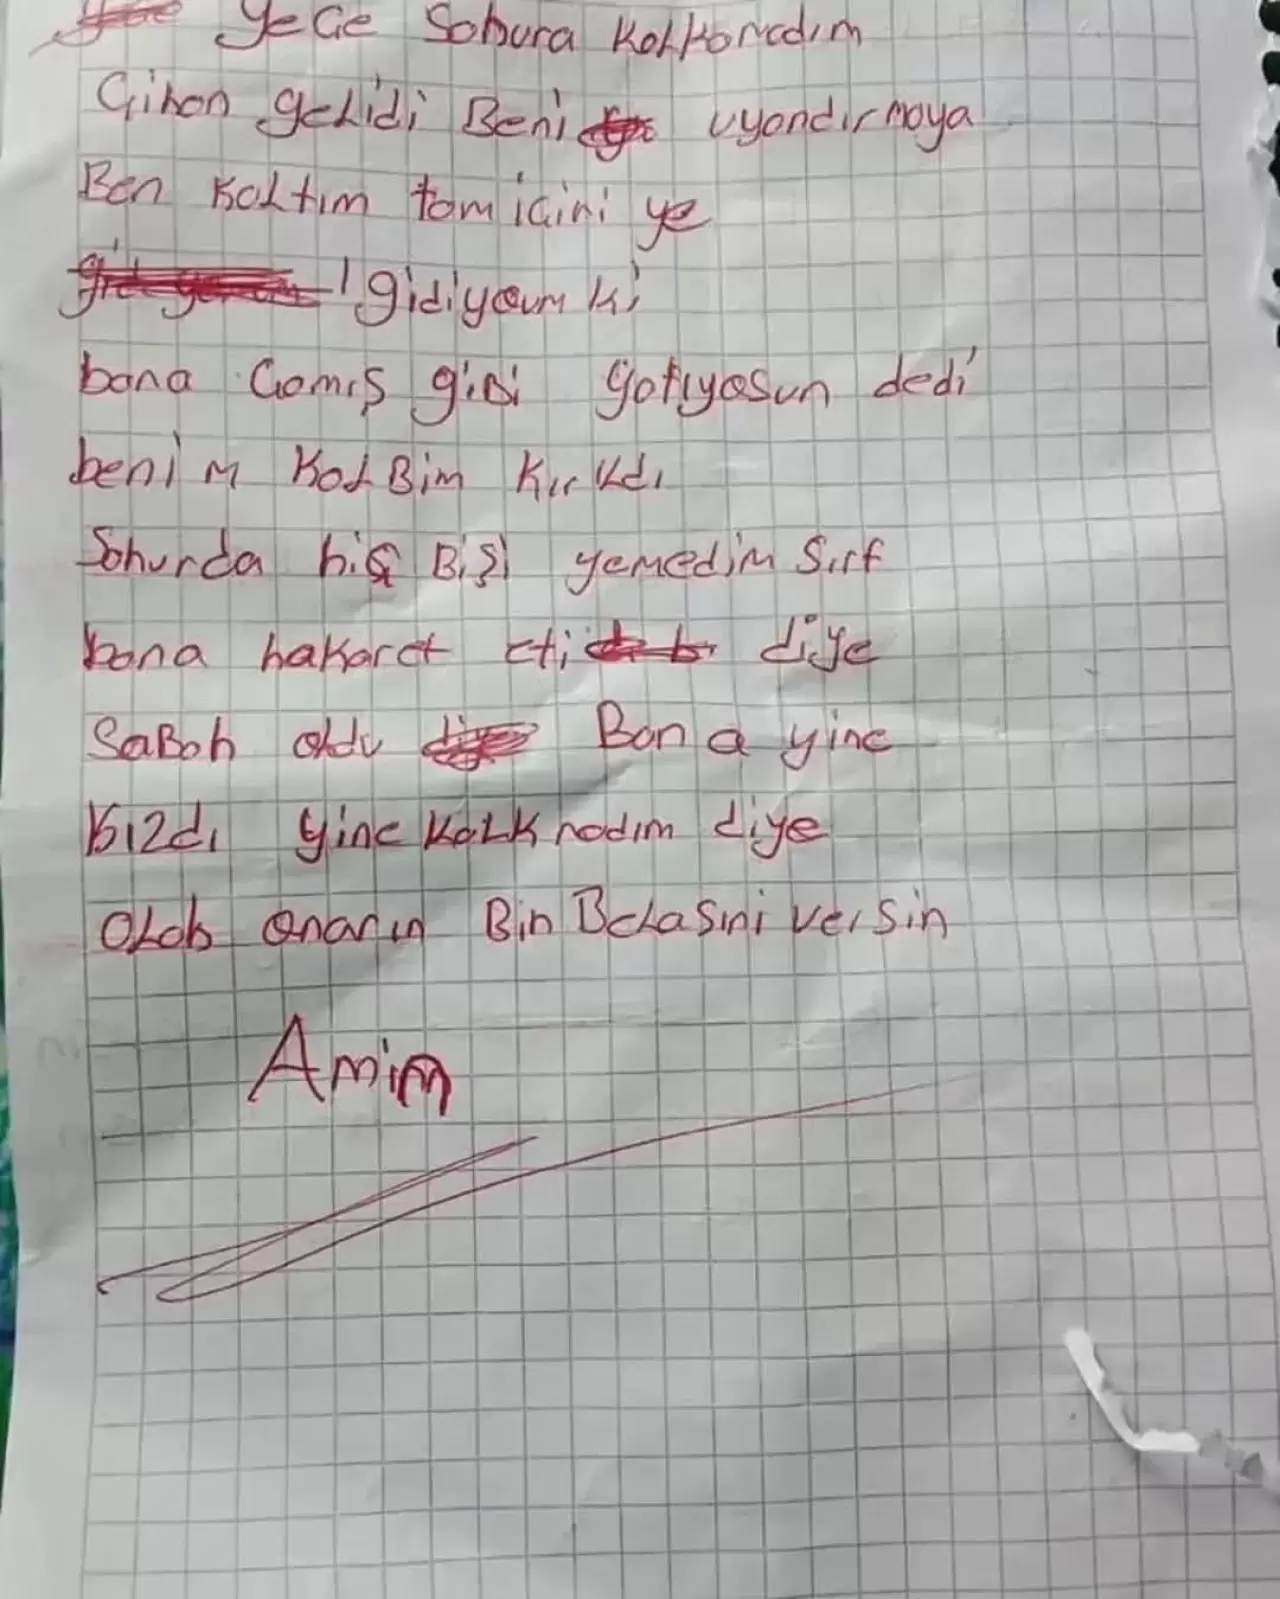 yece Sohura kalkamadım
Cihan gelidi Beni uyandırmaya
Ben kaltım tam icini ye
gidiyoum ki
bana Camış gibi yatıyosun dedi
benim KalBim kırkdı
Sohurda hiç Bişi yemedim Sırf
bana hakaret eti diye
SaBah oldu Bana yine
kızdı yine kalkmadım diye
Olah onarın Bin Belasıni versin
Amim